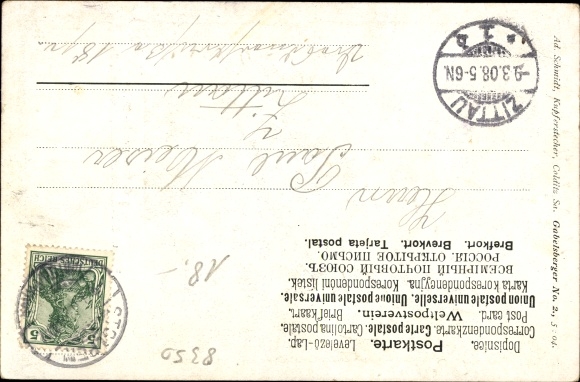 Dopisnice. Levelező-Lap.
Postkarte.
Correspondenzkarte. Carte postale. Cartolina postale.
Post card. Weltpostverein. Briefkaart.
Union postale universelle. Unione postale universale.
Karta korespondencyjna. Korespondenční lístek.
ВСЕМІРНЫЙ ПОЧТОВЫЙ СОЮЗЪ.
РОССІЯ. ОТКРЫТОЕ ПИСЬМО.
Brefkort. Brevkort. Tarjeta postal.
Herrn
Paul Meiser
Zittau
DEUTSCHES REICH
5
5
ZITTAU
9.3.08. 5-6N.
* 1 b
18.-
8350
Ad. Schmidt, Kupferstecher, Colditz Sa. Gabelsberger No. 2, 5: 04.